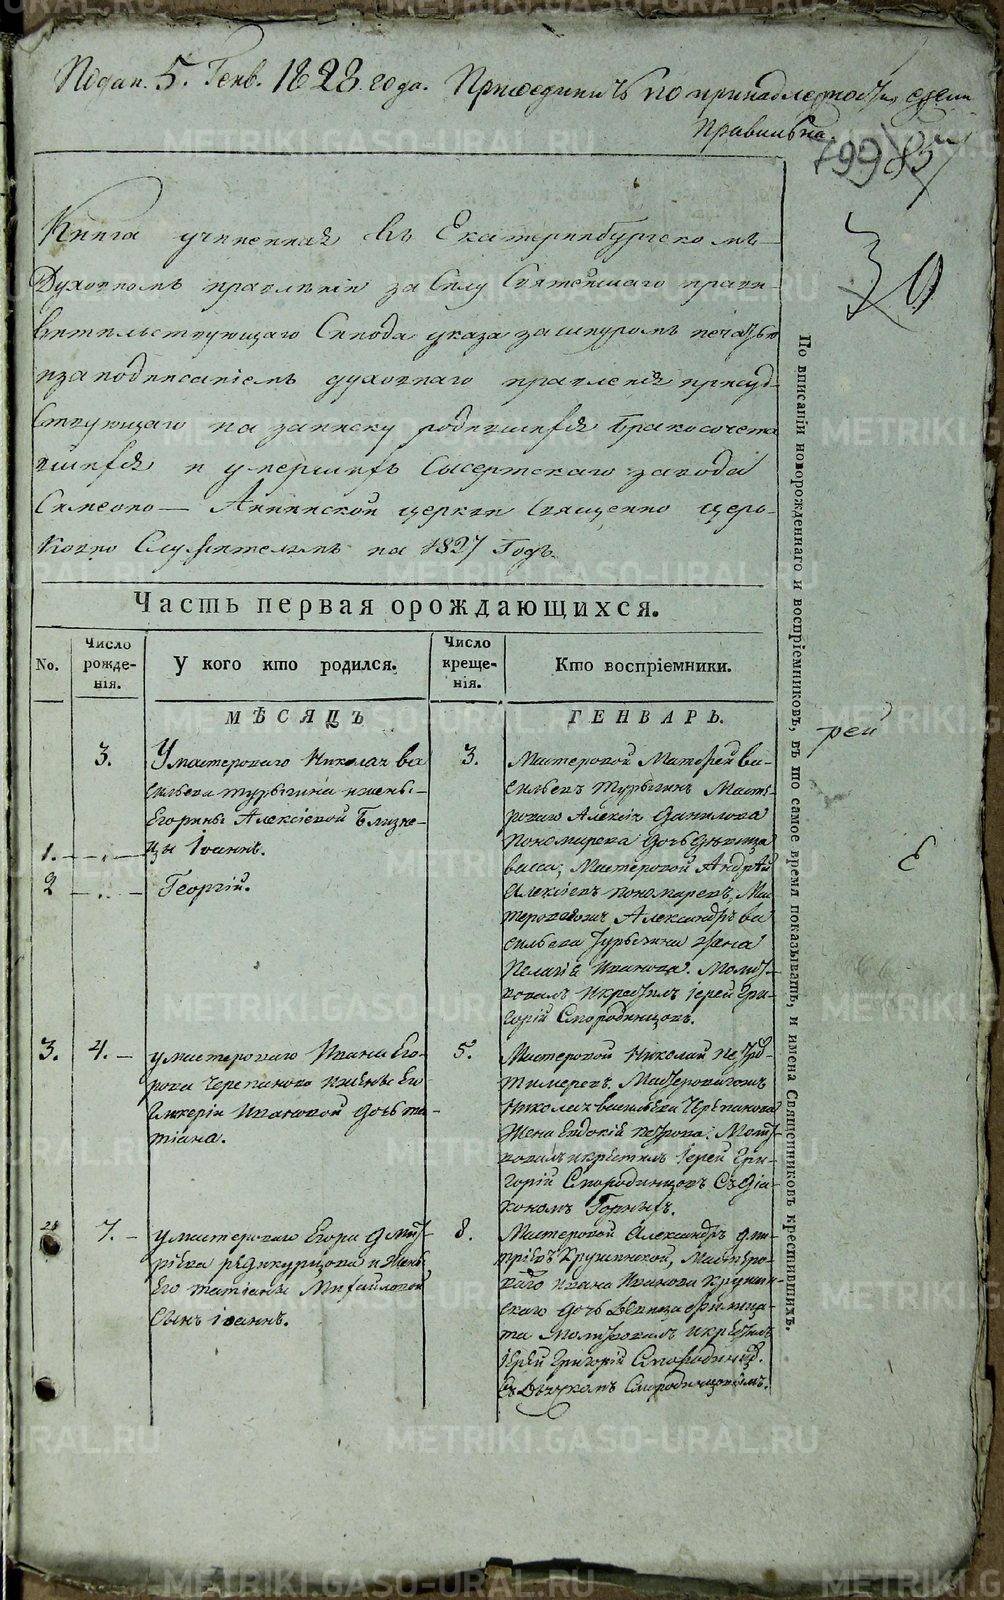 Подан. 5. Генв. 1828 года. Приоединить по принадлежности
Правильна.
799 857
30
Книга учиненная въ Екатеринбургскомъ
Духовномъ правленіи за силу Святейшаго прави-
вительствующаго Синода указа за шнуромъ печатью
изаподписаніемъ духовнаго правленія присуд-
ствующаго на записку родившихся бракосочета
вшихся и умершихъ Сысертскаго завода
Симеоно — Аннинской церкви священно церь-
ковно служителямъ на 1827 Годъ.
Часть первая орождающихся.
No.
Число рожде- нія.
У кого кто родился.
Число креще- нія.
Кто воспріемники.
МѢСЯЦЪ
ГЕНВАРЬ.
3.
Умастероваго Николая ва
сильева турыгина ижены
Егорины Алексіевой Близне-
1.
цы Іоаннъ.
2
Георгій.
3.
Мастеровой Матфей ва-
сильевъ турыгинъ Масте-
роваго Алексія Данилова
пономарева дочь девица
васса; Мастеровой Андрей
Алексіевъ пономаревъ, Мас
тероваго Александръ ва
сильева Турыгина жена
Пелагія Иванова. Молит-
вовалъ икрестилъ іерей Гри-
горій Смородинцовъ.
3. 4.
умастероваго Ивана Его-
рова Черепанова ижены Ев
Гликеріи Ивановой дочь та-
тіана.
5.
Мастеровой Николай петро
тимеревъ. Мастероваго
Николая васильева Черепанова
жена Евдокія петрова. Молит-
вовалъ икрестилъ іерей Гри-
горій Смородинцовъ Съ діа-
кономъ Горныхъ.
7.
умастероваго Егора дмит-
ріева редкурцова и жены
Его татіаны Михайловой
Сынъ іоаннъ.
8.
Мастеровой Александръ дми-
тріевъ Крушинской, Мастеро-
ваго ивана Иванова Крушин-
скаго дочь девица филица-
та Молитвовалъ икрестилъ
іерей Григорій Смородинц.
съ Дьячкомъ Смородинцовымъ.
По вписаніи новорожденнаго и воспріемниковъ, въ то самое время показывать, и имена Священниковъ крестившихъ.
рей